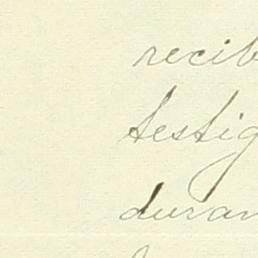 recib
testig
duran